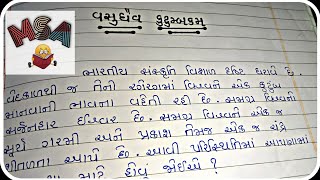 MSA
વસુધૈવ કુટુમ્બકમ્
ભારતીય સંસ્કૃતિ વિશાળ દૃષ્ટિ ધરાવે છે.
વેદકાળથી જ તેની રગેરગમાં વિશ્વને એક કુટુંબ
માનવાની ભાવના વહેતી રહી છે. સમગ્ર વિશ્વનો
સર્જનહાર ઈશ્વર છે. સમગ્ર વિશ્વને એક જ
સૂર્ય ગરમી અને પ્રકાશ તેમજ એક જ ચંદ્ર
શીતળતા આપે છે. આવી પરિસ્થિતિમાં આપણામાં
માટે હોવું જોઈએ ?